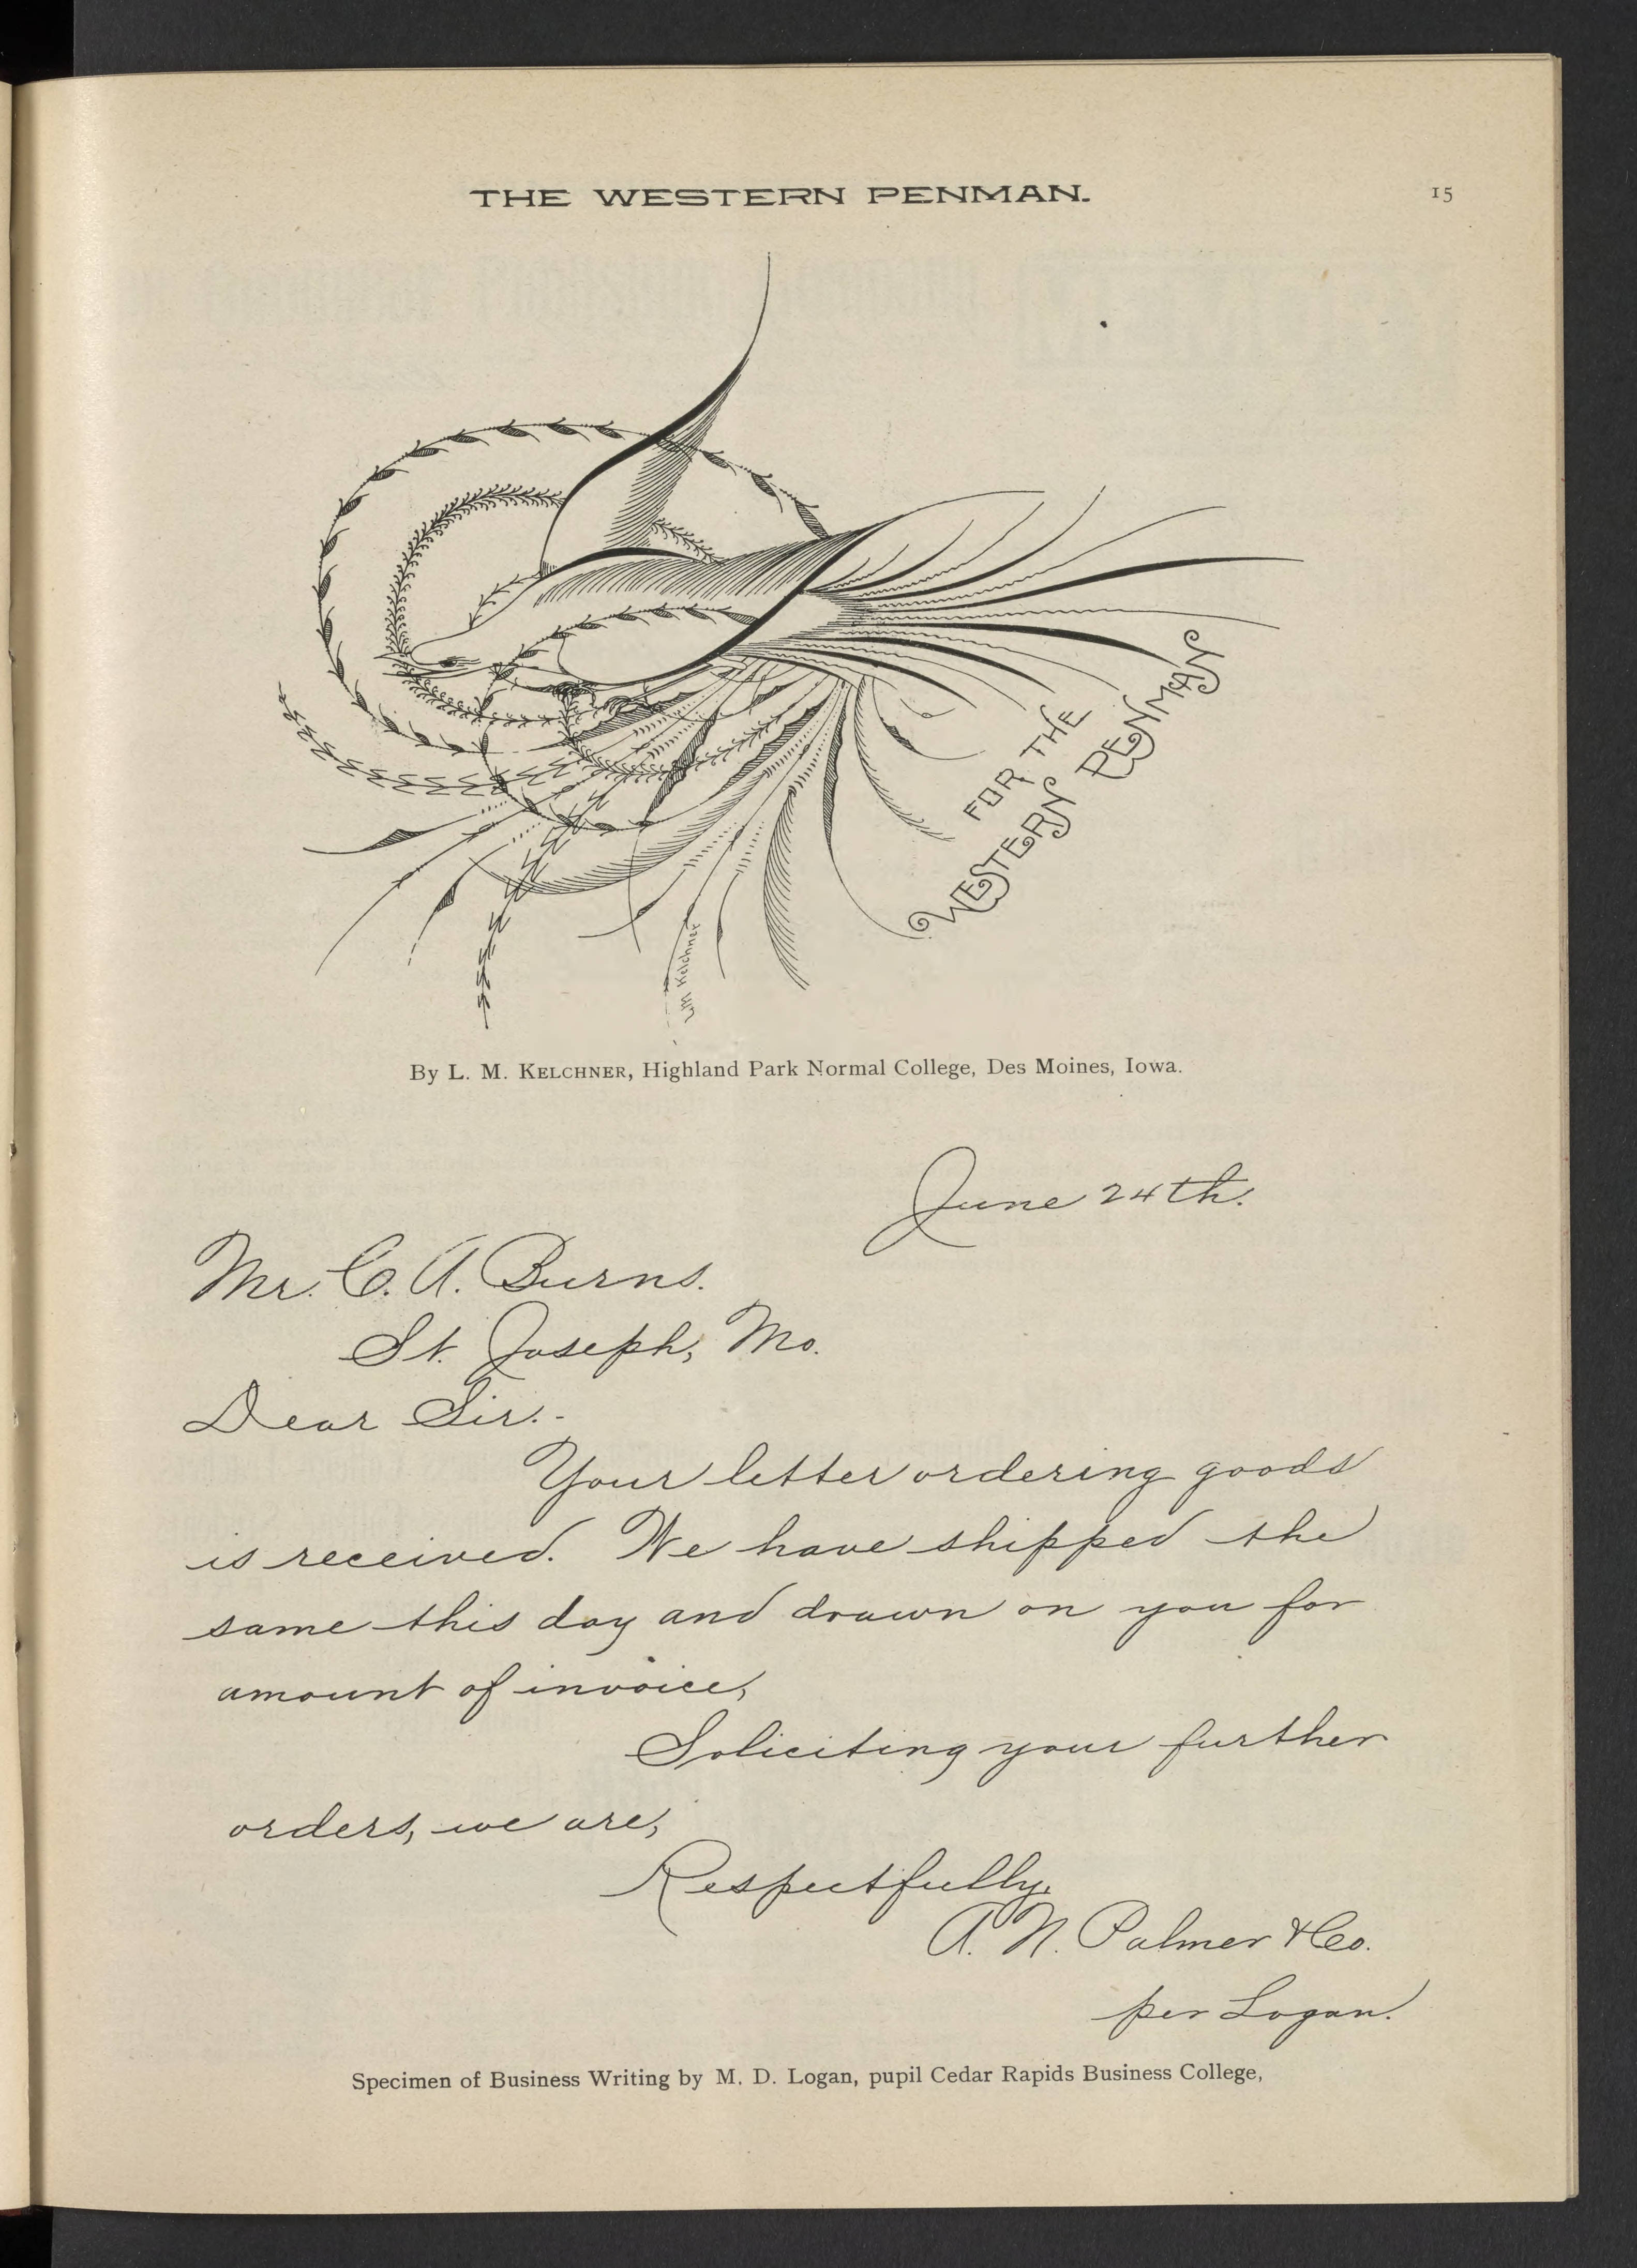 THE WESTERN PENMAN.
15
FOR THE
WESTERN PENMAN
LM Kelchner
By L. M. KELCHNER, Highland Park Normal College, Des Moines, Iowa.
June 24th.
Mr. C. A. Burns.
St. Joseph, Mo.
Dear Sir.-
Your letter ordering goods
is received. We have shipped the
same this day and drawn on you for
amount of invoice,
Soliciting your further
orders, we are,
Respectfully,
A. N. Palmer & Co.
per Logan.
Specimen of Business Writing by M. D. Logan, pupil Cedar Rapids Business College,